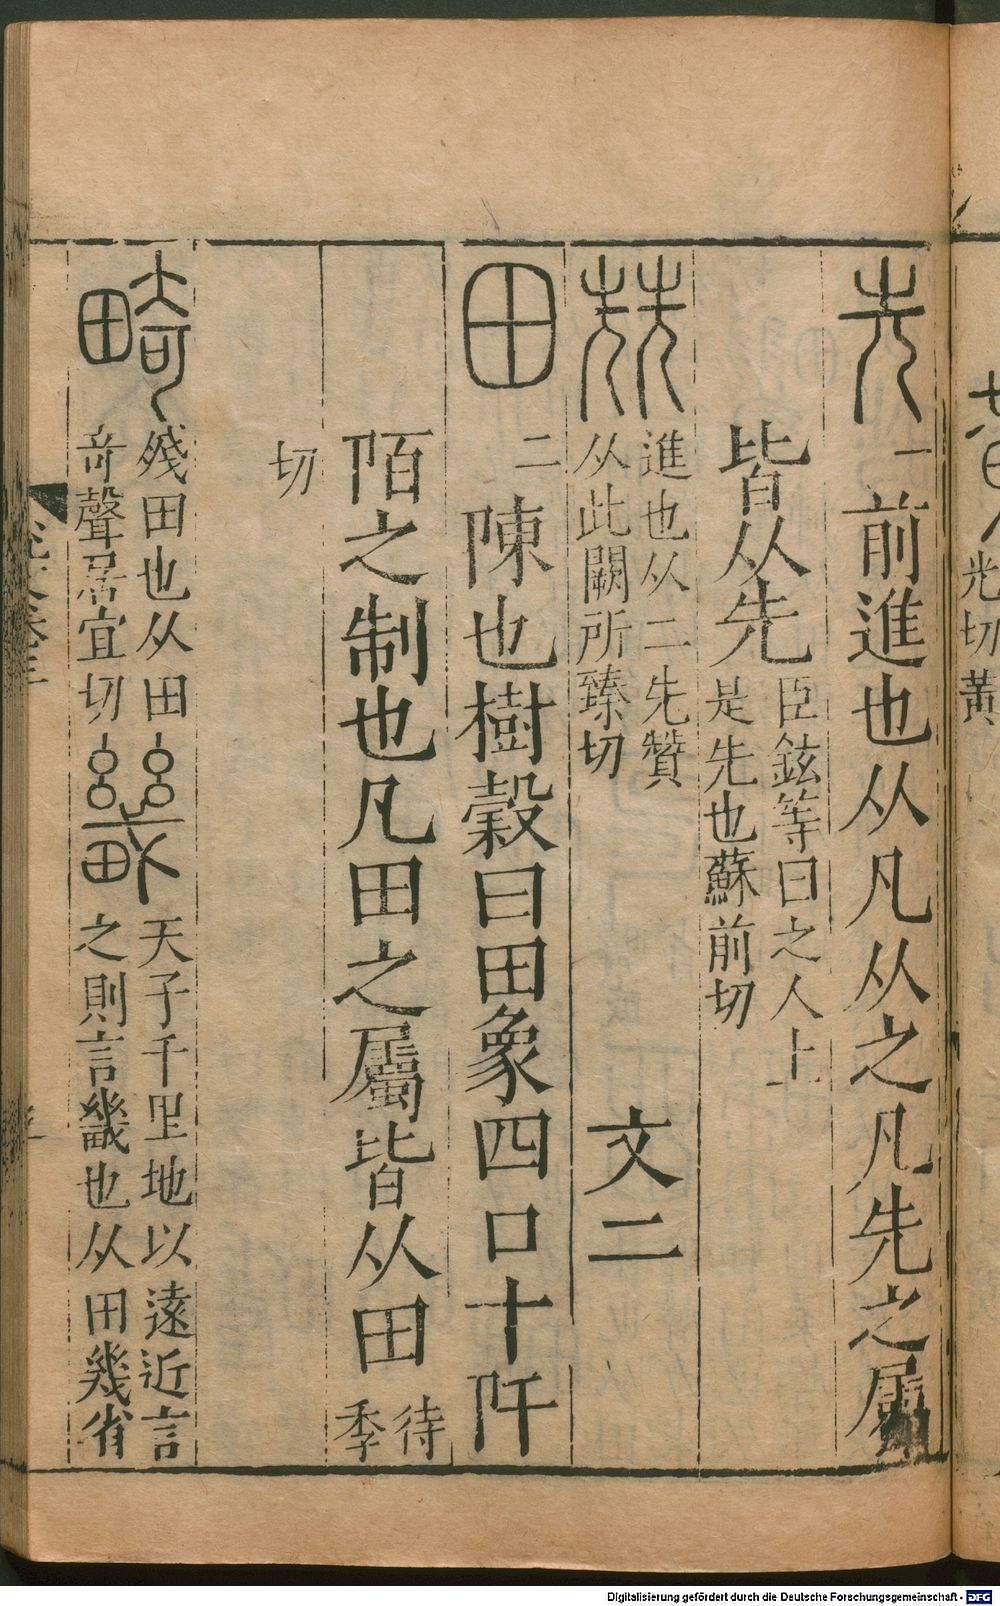 先 一 前進也从凡从之凡先之屬
皆从先 臣鉉等曰之人上
是先也蘇前切
兟 進也从二先贊
从此闕所臻切 文二
田 二 陳也樹穀曰田象四口十阡
陌之制也凡田之屬皆从田 待
季
切
畸 殘田也从田
奇聲居宜切
畿 天子千里地以遠近言
之則言畿也从田幾省
光切黃
Digitalisierung gefördert durch die Deutsche Forschungsgemeinschaft - DFG